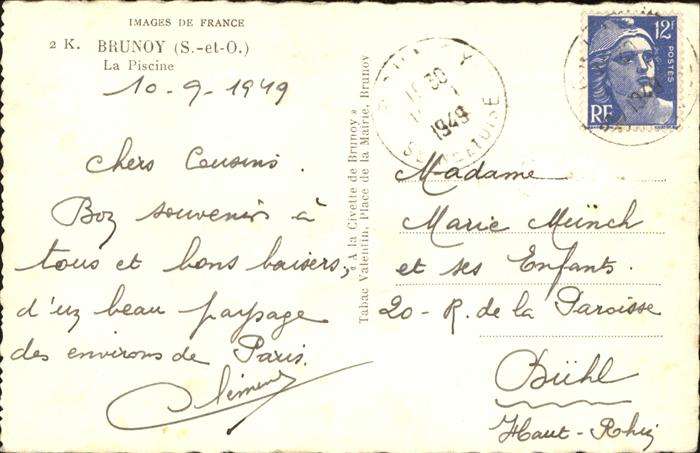 IMAGES DE FRANCE
2 K. BRUNOY (S.-et-O.)
La Piscine
10-9-1949
Chers Cousins.
Boz souvenir à
tous et bons baisers,
d'uz beau paysage
des environs de Paris.
Clémenz
« A la Civette de Brunoy »
Tabac Valentin, Place de la Mairie, Brunoy
1949
12F
POSTES
RF
Madame
Marie Münch
et ses Enfants.
20- R. de la Paroisse
Bühl
Haut-Rhin